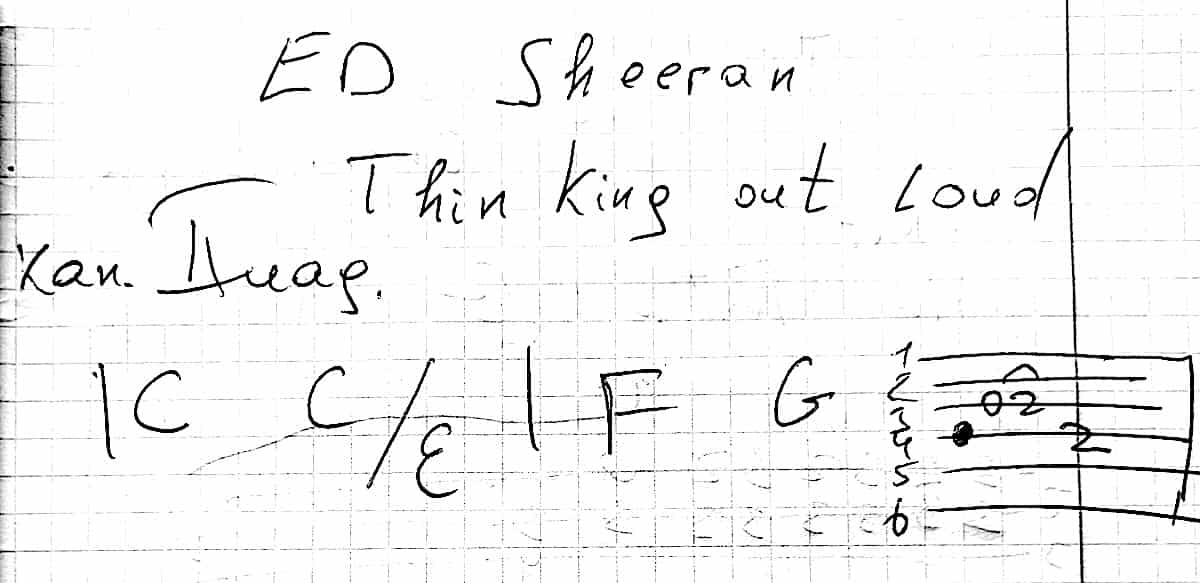 ED Sheeran
Thinking out Loud
|C C/E | F G
1
2
3
4
5
6
02
2